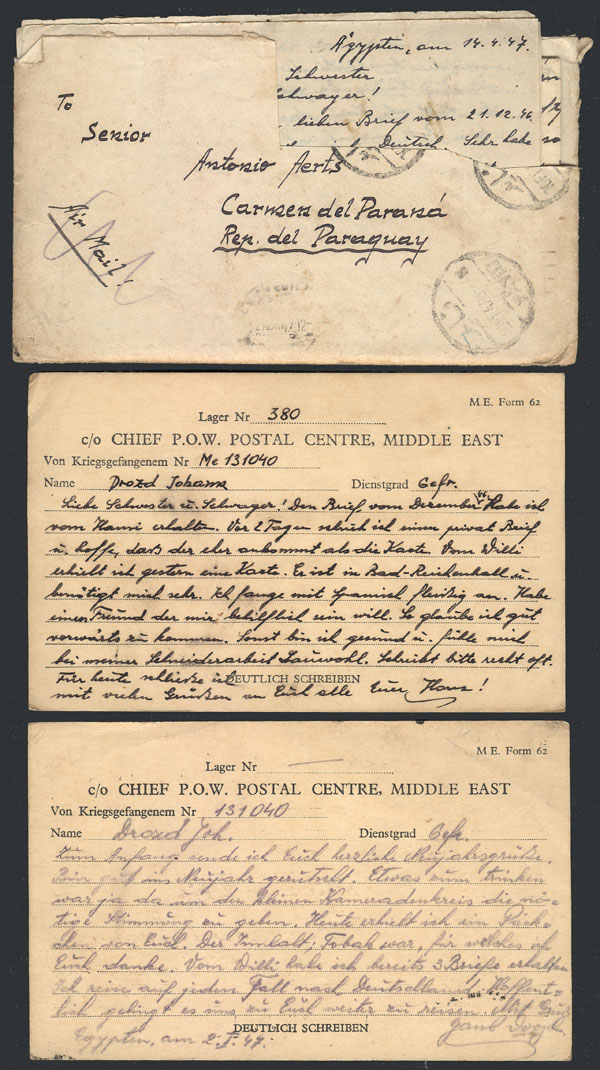 Ägypten, am 14.4.47.
Schwester
Schwager!
lieben Brief vom 21.12.46.
Deutsch. Sehr habe
To
Senior
Antonio Aerts
Carmen del Paraná
Rep. del Paraguay
Air Mail!
M E. Form 62
Lager Nr 380
c/o CHIEF P.O.W. POSTAL CENTRE, MIDDLE EAST
Von Kriegsgefangenem Nr Me 131040
Name Drozd Johann Dienstgrad Gefr.
Liebe Schwester u. Schwager! Den Brief vom Dezember habe ich
vom Hansi erhalten. Vor 2 Tagen schrieb ich einen privat Brief
u. hoffe, daß der eher ankommt als die Karte. Vom Willi
erhielt ich gestern eine Karte. Er ist in Bad-Reichenhall u.
benötigt mich sehr. Ich fange mit Spanisch fleißig an. Habe
einen Freund der mir behilflich sein will. So glaube ich gut
vorwärts zu kommen. Sonst bin ich gesund u. fühle mich
bei meiner Schneiderarbeit Sauwohl. Schreibt bitte recht oft.
Für heute schließe ich
DEUTLICH SCHREIBEN
mit vielen Grüßen an Euch alle Euer Hans!
M E. Form 62
Lager Nr
c/o CHIEF P.O.W. POSTAL CENTRE, MIDDLE EAST
Von Kriegsgefangenem Nr 131040
Name Drozd Joh. Dienstgrad Gefr.
Zum Anfang sende ich Euch herzliche Neujahrsgrüße.
Bin gut ins Neujahr gerutscht. Etwas zum trinken
war ja da um den kleinen Kameradenkreis die nö-
tige Stimmung zu geben. Heute erhielt ich ein Päck-
chen von Euch. Der Innhalt; Tobak war, für welches ich
Euch danke. Vom Willi habe ich bereits 3 Briefe erhalten
Ich reise auf jeden Fall nach Deutschland. Hoffent-
lich gelingt es uns zu Euch weiter zu reisen. Mit Gruß
DEUTLICH SCHREIBEN
Egypten, am 2.I.47.